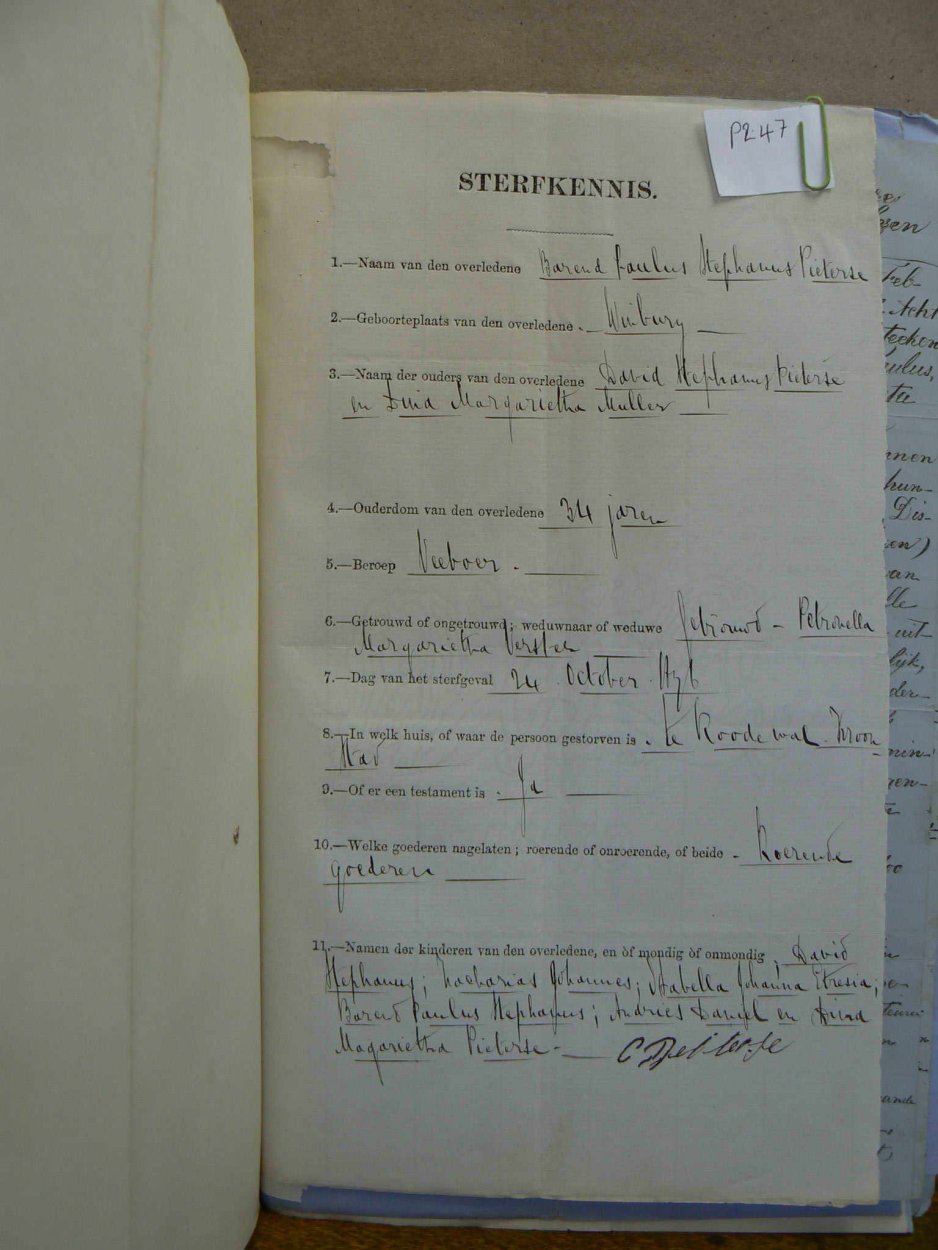 P2.47
STERFKENNIS.
1.—Naam van den overledene Barend Paulus Stephanus Pieterse
2.—Geboorteplaats van den overledene. Winburg
3.—Naam der ouders van den overledene David Stephanus Pieterse
en Dina Margarietha Muller
4.—Ouderdom van den overledene 34 jaren
5.—Beroep Veeboer.
6.—Getrouwd of ongetrouwd; weduwnaar of weduwe Getrouwd - Petronella
Margarietha
7.—Dag van het sterfgeval 24 October
8.—In welk huis, of waar de persoon gestorven is. te Roodewal. Kroon
stad
9.—Of er een testament is. Ja
10.—Welke goederen nagelaten; roerende of onroerende, of beide - Roerende
goederen
11.—Namen der kinderen van den overledene, en òf mondig òf onmondig. David
Stephanus; Zacharias Johannes; Johanna
Barend Paulus Stephanus; Andries Daniel en Dina
Magarietha Pieterse -